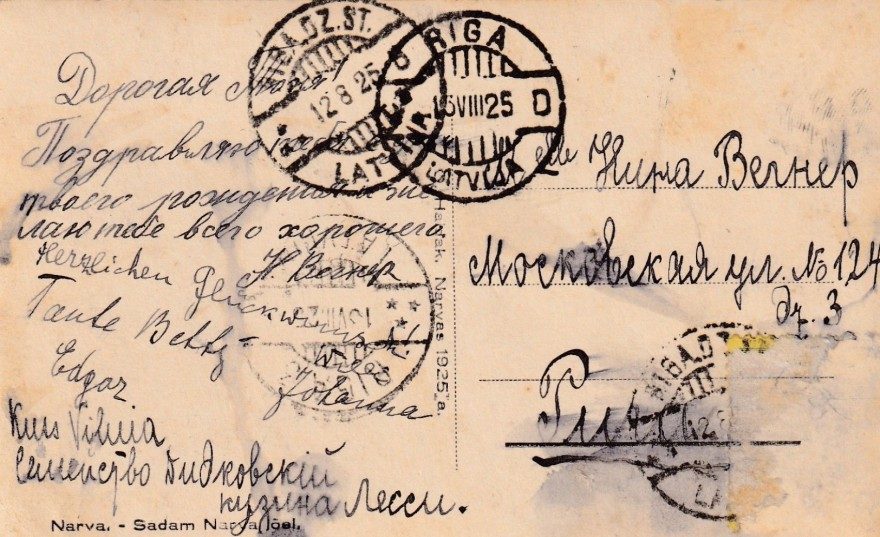 Дорогая
Поздравляю тебя
твоего рождения и же
лаю тебе всего хорошего
Н. Вегнер
Herzlichen Glückwunsch!
Tante Betty
Edgar
Johanna
Kuss
Семейство Дидковскій
кузина Лесси.
Narva. - Sadam Narva jõel.
Narvas 1925 a.
RIGA DZ. ST.
12 8 25
LATVIJA
RIGA
15 VIII 25
D
LATVIJA
Нина Вегнер
Московская ул. № 124
дз. 3
RIGA DZ
LA